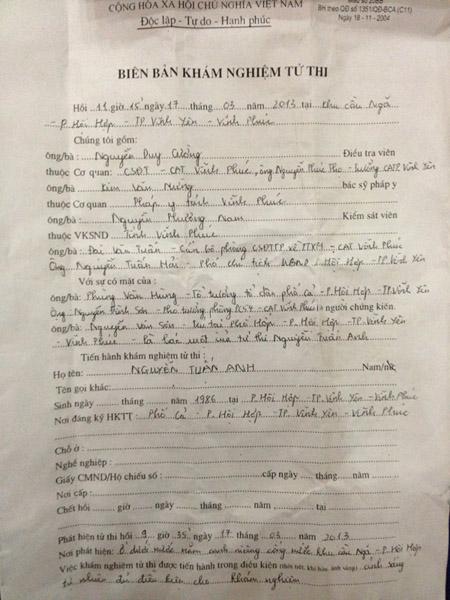 CỘNG HÒA XÃ HỘI CHỦ NGHĨA VIỆT NAM
Độc lập - Tự do - Hạnh phúc
BH theo QĐ số 1351/QĐ-BCA (C11)
Ngày 18 - 11 - 2004
BIÊN BẢN KHÁM NGHIỆM TỬ THI
Hồi 11 giờ 15 ngày 17 tháng 03 năm 2013 tại khu cầu Ngã
- P. Hội Hợp - TP. Vĩnh Yên - Vĩnh Phúc
Chúng tôi gồm:
ông/bà: Nguyễn Duy Cường Điều tra viên
thuộc Cơ quan: CSĐT - CAT Vĩnh Phúc, ông Nguyễn Phúc Thọ - trưởng CATP. Vĩnh Yên
ông/bà: Kim Văn bác sỹ pháp y
thuộc Cơ quan Pháp y tỉnh Vĩnh Phúc
ông/bà: Nguyễn Phương Nam Kiểm sát viên
thuộc VKSND: Tỉnh Vĩnh Phúc
ông/bà: Đại Văn Tuấn - Cán bộ phòng CSĐTTP về TTXH - CAT Vĩnh Phúc
Ông Nguyễn Tuấn Hải - Phó chủ tịch UBND P. Hội Hợp - TP. Vĩnh Yên
Với sự có mặt của:
ông/bà: Phùng Văn Hùng - Tổ trưởng tổ dân phố cả - P. Hội Hợp - TP. Vĩnh Yên
Ông Nguyễn Sơn - Phó trưởng phòng PC54 - CAT Vĩnh Phúc là người chứng kiến.
ông/bà: Nguyễn Văn Sơn - trú tại Phố Hợp - P. Hội Hợp - TP Vĩnh Yên
- Vĩnh Phúc - là bác ruột của tử thi Nguyễn Tuấn Anh
Tiến hành khám nghiệm tử thi:
Họ tên: NGUYỄN TUẤN ANH Nam/nữ
Tên gọi khác:
Sinh ngày tháng năm 1986 tại P. Hội Hợp - TP. Vĩnh Yên - Vĩnh Phúc
Nơi đăng ký HKTT: Phố Cả - P. Hội Hợp - TP. Vĩnh Yên - Vĩnh Phúc
Chỗ ở:
Nghề nghiệp:
Giấy CMND/Hộ chiếu số: cấp ngày tháng năm
Nơi cấp:
Chết hồi giờ ngày tháng năm tại
Phát hiện tử thi hồi 9 giờ 35 ngày 17 tháng 03 năm 2013
Nơi phát hiện: Ở dưới nước nằm cạnh miệng cống nước khu cầu Ngã, - P. Hội Hợp
Việc khám nghiệm tử thi được tiến hành trong điều kiện (thời tiết, khí hậu, ánh sáng) ánh sáng
tự nhiên đủ điều kiện cho khám nghiệm